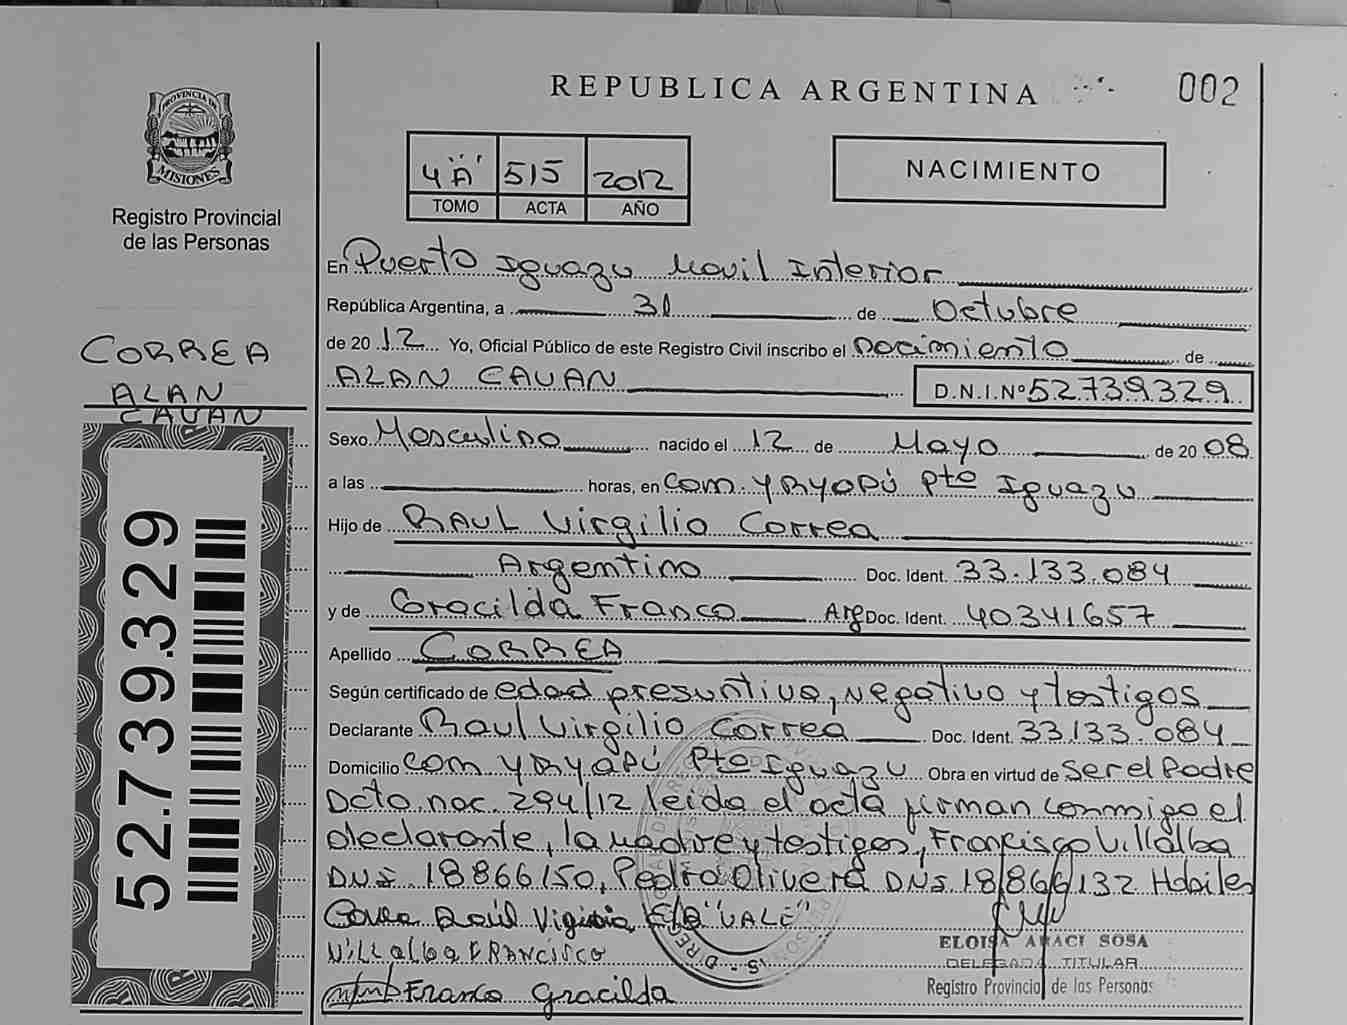 REPUBLICA ARGENTINA
002
PROVINCIA DE
MISIONES
Registro Provincial
de las Personas
4 "A" 515 2012
TOMO ACTA AÑO
NACIMIENTO
En Puerto Iguazu Movil Interior
República Argentina, a 31 de Octubre
de 2012 Yo, Oficial Público de este Registro Civil inscribo el nacimiento de
ALAN CAUAN D.N.I.Nº 52739329
CORREA
ALAN
CAUAN
52.739.329
Sexo Masculino nacido el 12 de Mayo de 2008
a las horas, en Com. YRYAPÚ Pto Iguazu
Hijo de RAUL Virgilio Correa
Argentino Doc. Ident. 33.133.084
y de Gracilda Franco Arg Doc. Ident. 40341657
Apellido CORREA
Según certificado de edad presuntiva, negativo y testigos
Declarante Raul Virgilio Correa Doc. Ident. 33.133.084
Domicilio Com YRYAPÚ Pto Iguazu Obra en virtud de Ser el Padre
Dcto nac. 294/12 leida el acta firman conmigo el
declarante, la madre y testigos, Francisco Villalba
DNI 18866150, Pedro Olivera DNI 18866132 Habiles
Correa Raúl E/R "VALE"
Villalba FRANCISCO
Franco Gracilda
ELOISA ARACI SOSA
DELEGADA TITULAR
Registro Provincial de las Personas